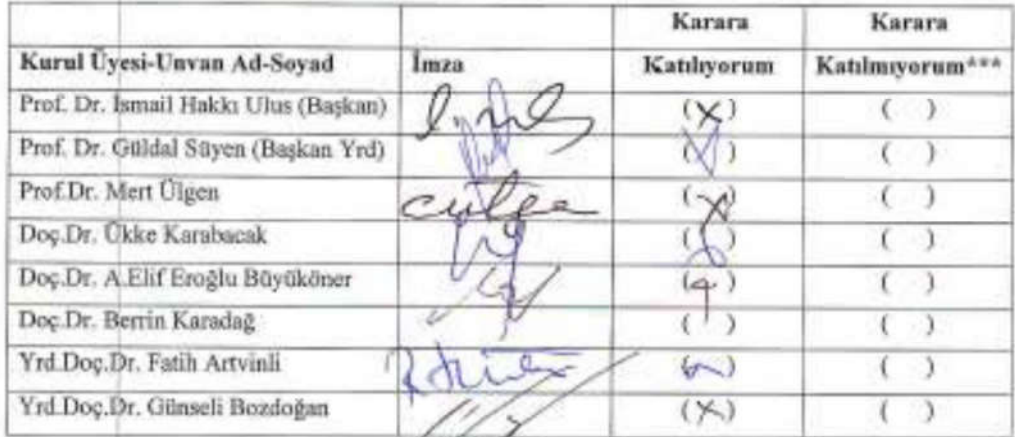 Karara Karara
Kurul Üyesi-Unvan Ad-Soyad İmza Katılıyorum Katılmıyorum***
Prof. Dr. İsmail Hakkı Ulus (Başkan) (X) ( )
Prof. Dr. Güldal Süyen (Başkan Yrd) ( ) ( )
Prof.Dr. Mert Ülgen (X) ( )
Doç.Dr. Ükke Karabacak ( ) ( )
Doç.Dr. A.Elif Eroğlu Büyüköner ( ) ( )
Doç.Dr. Berrin Karadağ ( ) ( )
Yrd.Doç.Dr. Fatih Artvinli ( ) ( )
Yrd.Doç.Dr. Günseli Bozdoğan (X) ( )